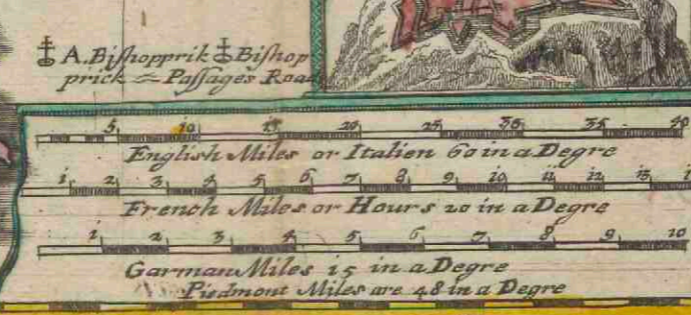 A. Biſhopprik Biſhop
prick Paſſages Road
5 10 15 20 25 30 35 40
English Miles or Italien 60 in a Degre
1 2 3 4 5 6 7 8 9 10 11 12 13 1
French Miles or Hours 20 in a Degre
1 2 3 4 5 6 7 8 9 10
Garman Miles 15 in a Degre
Piedmont Miles are 48 in a Degre